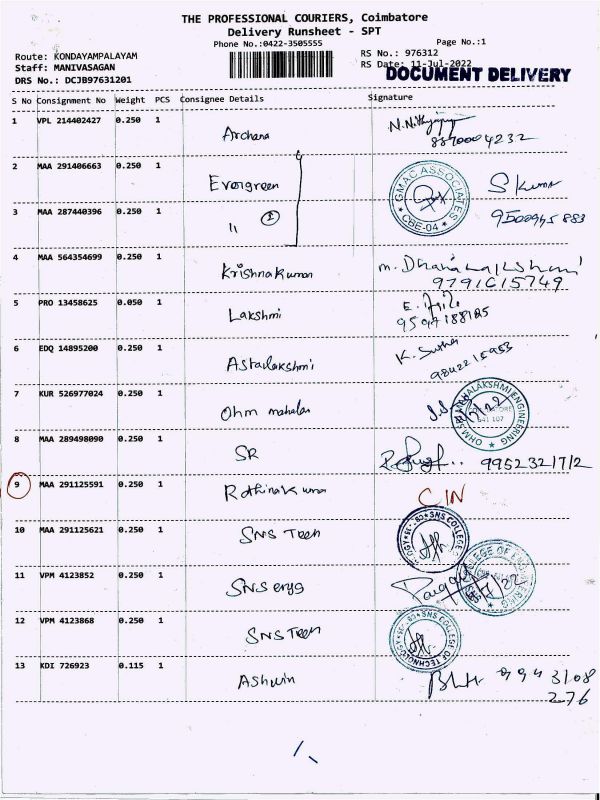 THE PROFESSIONAL COURIERS, Coimbatore
Delivery Runsheet - SPT
Phone No.:0422-3505555
Page No.:1
Route: KONDAYAMPALAYAM
RS No.: 976312
Staff: MANIVASAGAN
RS Date: 11-Jul-2022
DRS No.: DCJB97631201
DOCUMENT DELIVERY
S No Consignment No Weight PCS Consignee Details Signature
1 VPL 214402427 0.250 1 Archana
8870004232
2 MAA 291406663 0.250 1 Evergreen S Kumar
GMAC ASSOCIATES CBE-04
3 MAA 287440396 0.250 1 11 2 9500945883
4 MAA 564354699 0.250 1 Krishnakumar
9791615749
5 PRO 13458625 0.050 1 Lakshmi
6 EDQ 14895200 0.250 1 Astalakshmi K. Sudha
9842215953
7 KUR 526977024 0.250 1 Ohm mahalas
MAHALAKSHMI ENGINEERING 641 107
8 MAA 289498090 0.250 1 SR 9952321712
9 MAA 291125591 0.250 1 Rathinakumar CIN
10 MAA 291125621 0.250 1 SNS Tech
SNS COLLEGE
11 VPM 4123852 0.250 1 SNS engg
COLLEGE OF ENGINEERING
12 VPM 4123868 0.250 1 SNS Tech
SNS COLLEGE OF TECHNOLOGY
13 KDI 726923 0.115 1 Ashwin 9943108
276